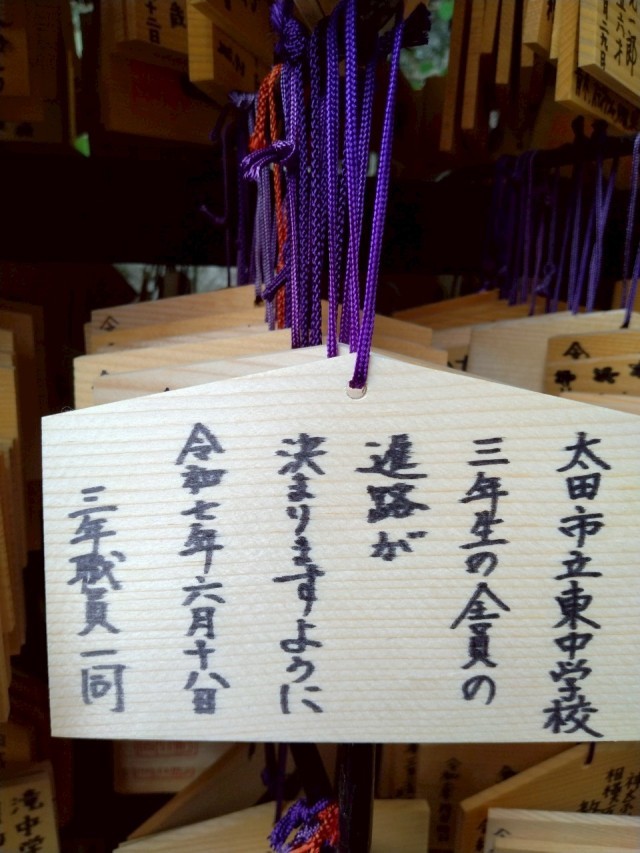 太田市立東中学校
三年生の全員の
進路が
決まりますように
令和七年六月十八日
三年職員一同
滝中学